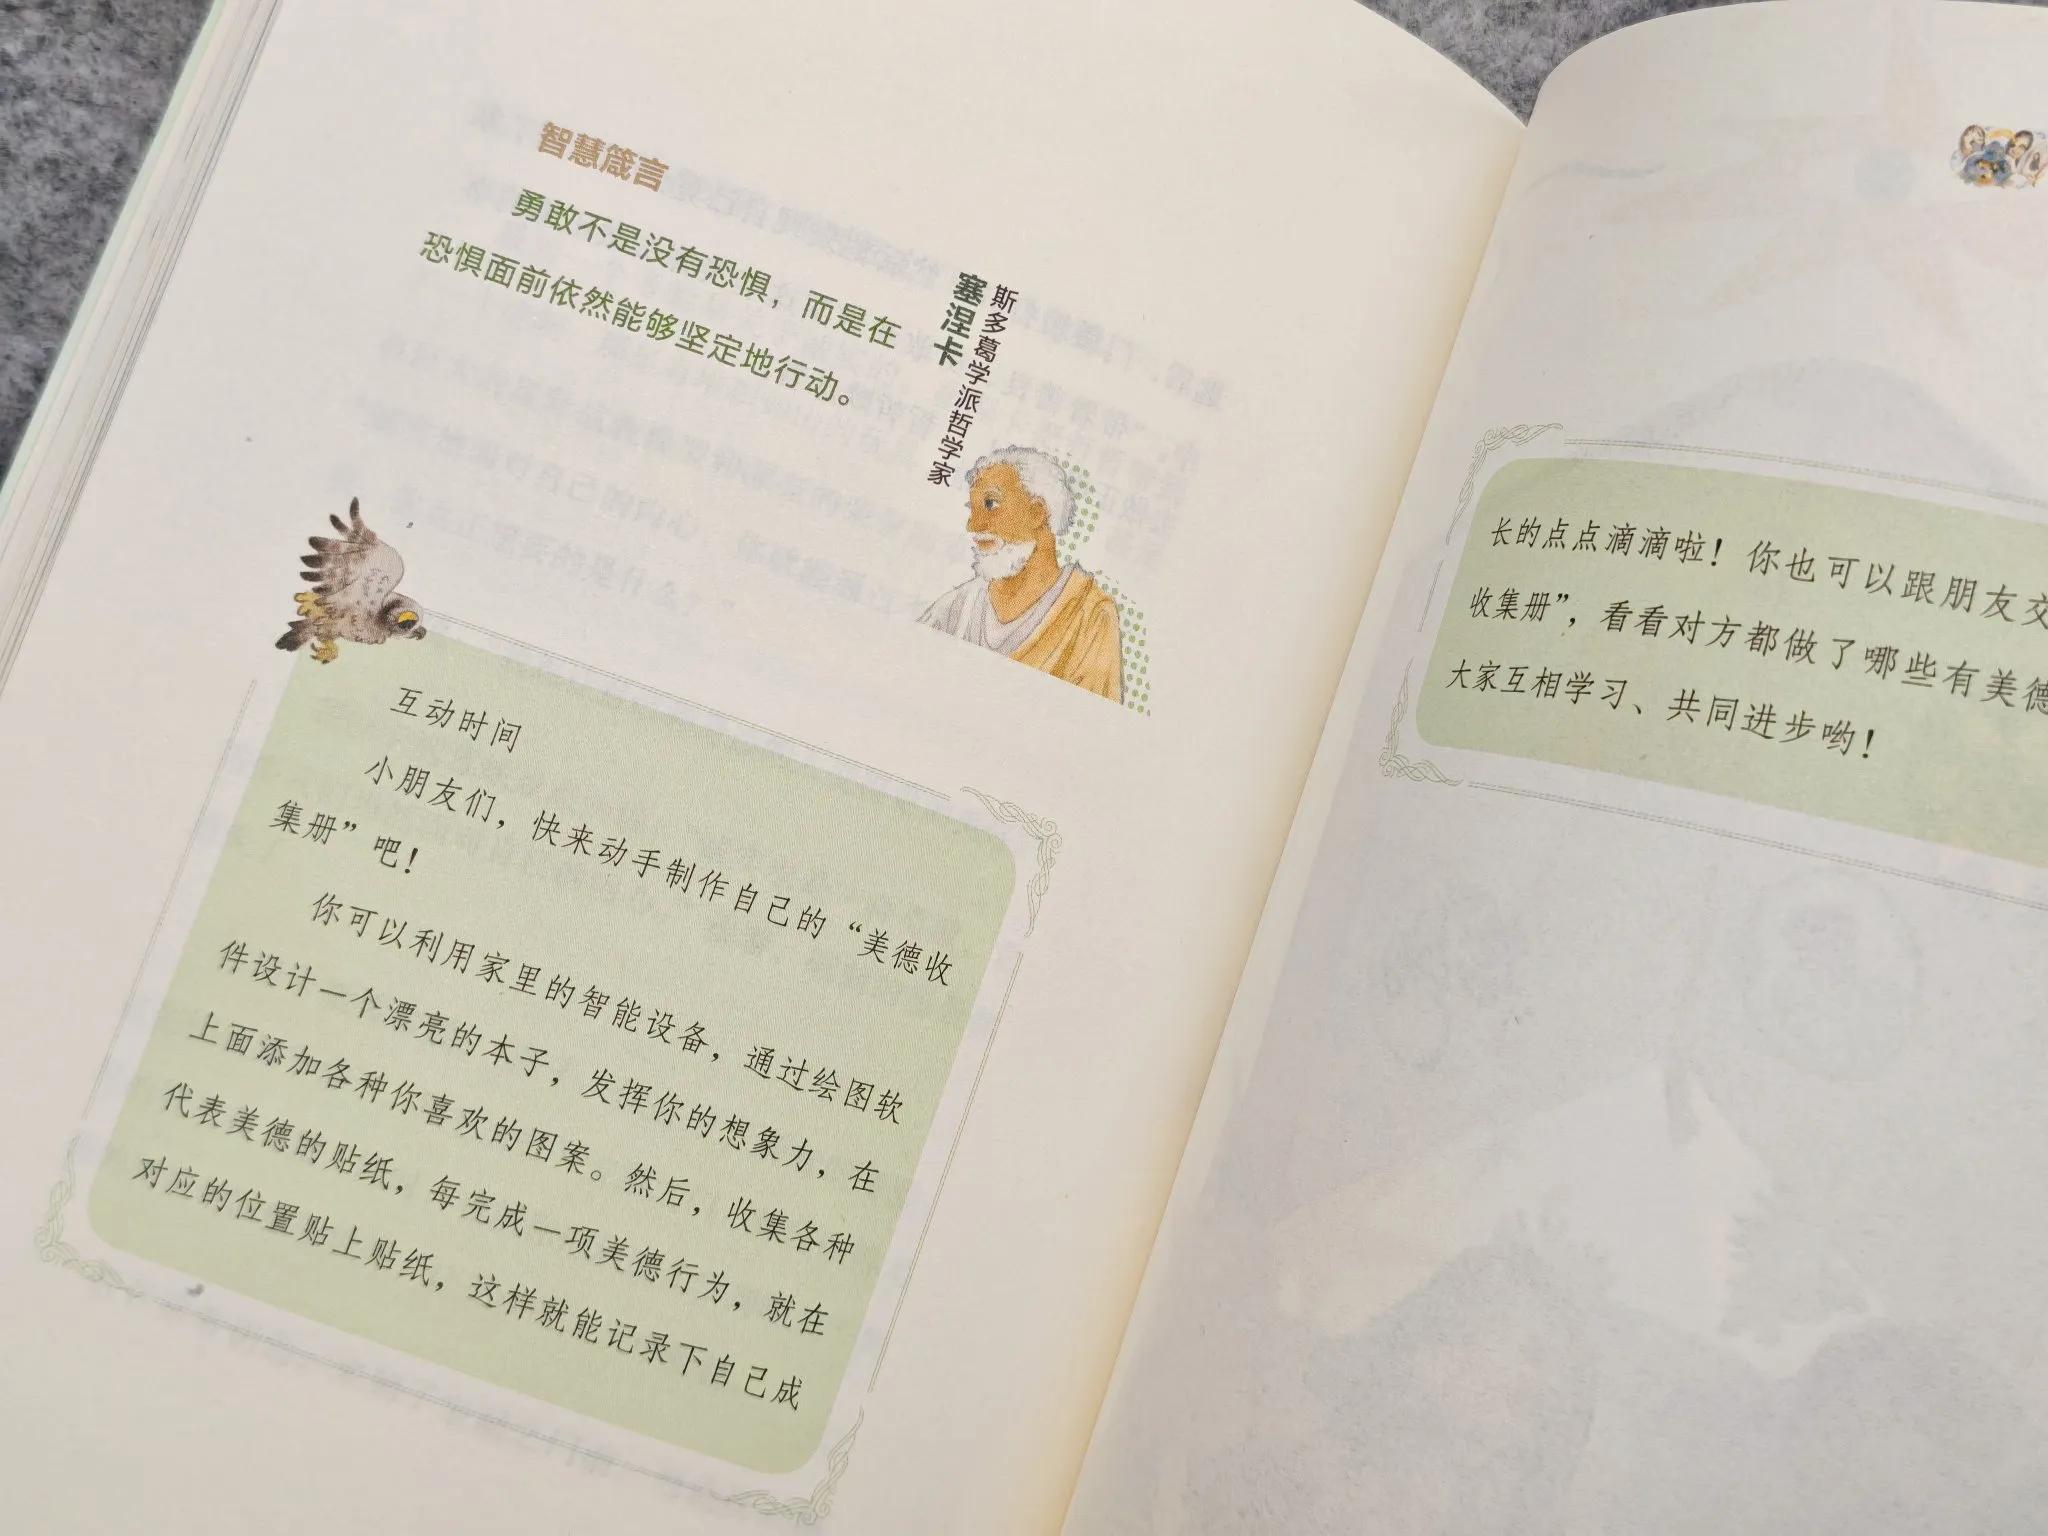 智慧箴言
勇敢不是没有恐惧，而是在
恐惧面前依然能够坚定地行动。
斯多葛学派哲学家
塞涅卡
互动时间
小朋友们，快来动手制作自己的“美德收
集册”吧！
你可以利用家里的智能设备，通过绘图软
件设计一个漂亮的本子，发挥你的想象力，在
上面添加各种你喜欢的图案。然后，收集各种
代表美德的贴纸，每完成一项美德行为，就在
对应的位置贴上贴纸，这样就能记录下自己成
长的点点滴滴啦！你也可以跟朋友交
收集册”，看看对方都做了哪些有美德
大家互相学习、共同进步哟！